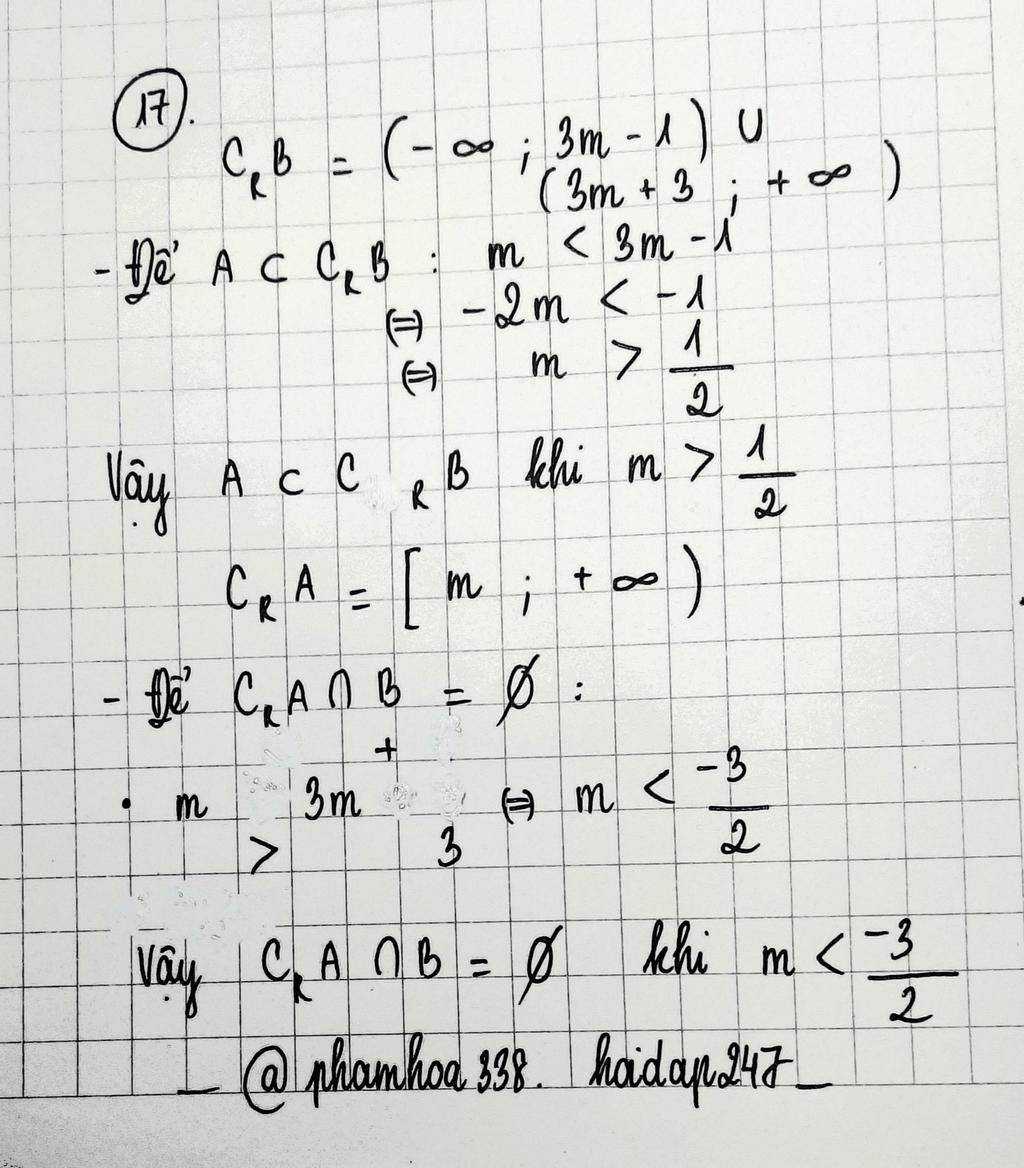 17.
C_R B = (-∞ ; 3m - 1) ∪
(3m + 3 ; +∞)
- Để A ⊂ C_R B : m < 3m - 1
(=) -2m < -1
(=) m > 1/2
Vậy A ⊂ C_R B khi m > 1/2
C_R A = [m ; +∞)
- Để C_R A ∩ B = Ø :
• m > 3m + 3 (=) m < -3/2
Vậy C_R A ∩ B = Ø khi m < -3/2
_ @phamhoa338. hoidap247_